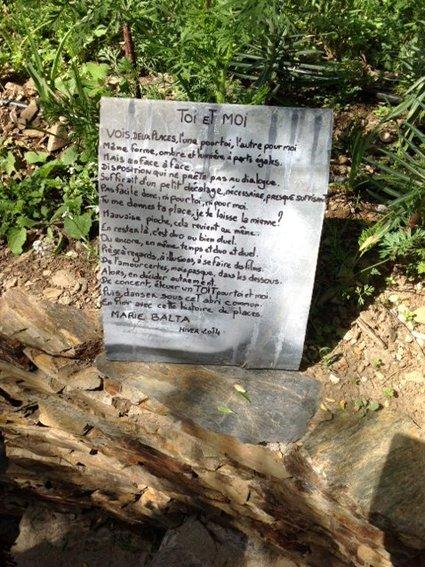 TOI ET MOI
VOIS, DEUX PLACES, l'une pour toi, l'autre pour moi
Même forme, ombre et lumière à parts égales.
Mais en face à face.
Disposition qui ne prête pas au dialogue.
Suffirait d'un petit décalage, nécessaire, presque suffisant
Pas facile donc, ni pour toi, ni pour moi.
Tu me donnes ta place, je te laisse la mienne?
Mauvaise pioche, cela revient au même.
En rester là, c'est duo ou bien duel.
Ou encore, en même temps et duo et duel.
à regards, à illusions, à se faire des films.
De l'amour certes, mais presque, dans les dessous.
Alors, en décider autrement.
De concert, élever un TOIT pour toi et moi.
Puis danser sous cet abri
En finir avec cette histoire de places.
MARIE BALTA
HIVER 2014